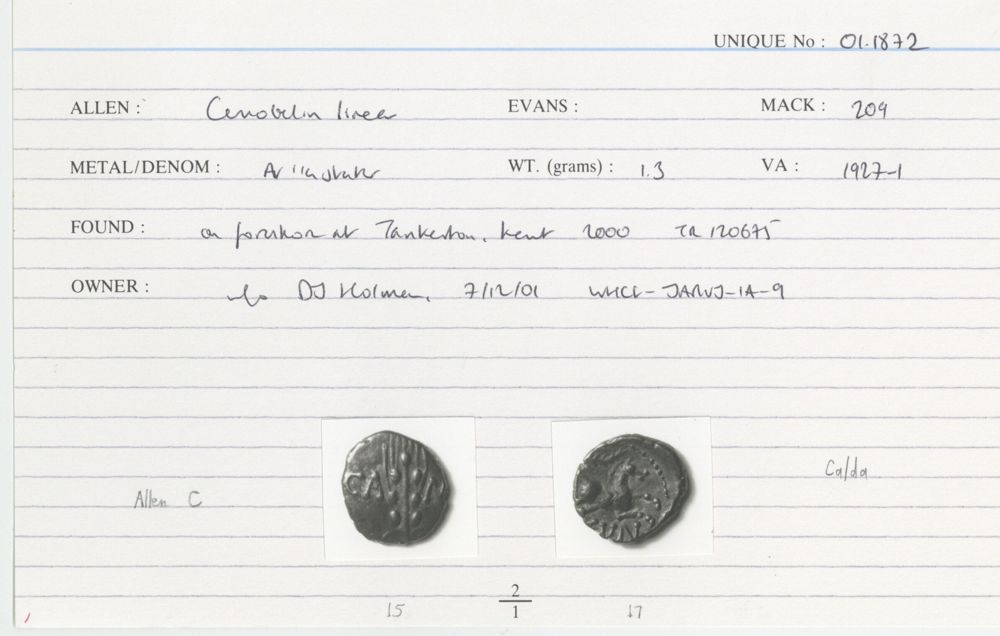 UNIQUE No : 01.1872
ALLEN : Cunobelin linear EVANS : MACK : 209
METAL/DENOM : WT. (grams) : 1.3 VA : 1927-1
FOUND : on foreshore at Tankerton, Kent 2000 TR 120675
OWNER : DJ Holman, 7/12/01 WHCL-JARVJ-IA-9
CA
CUN
Allen C
Ca/da
2
1
15
17